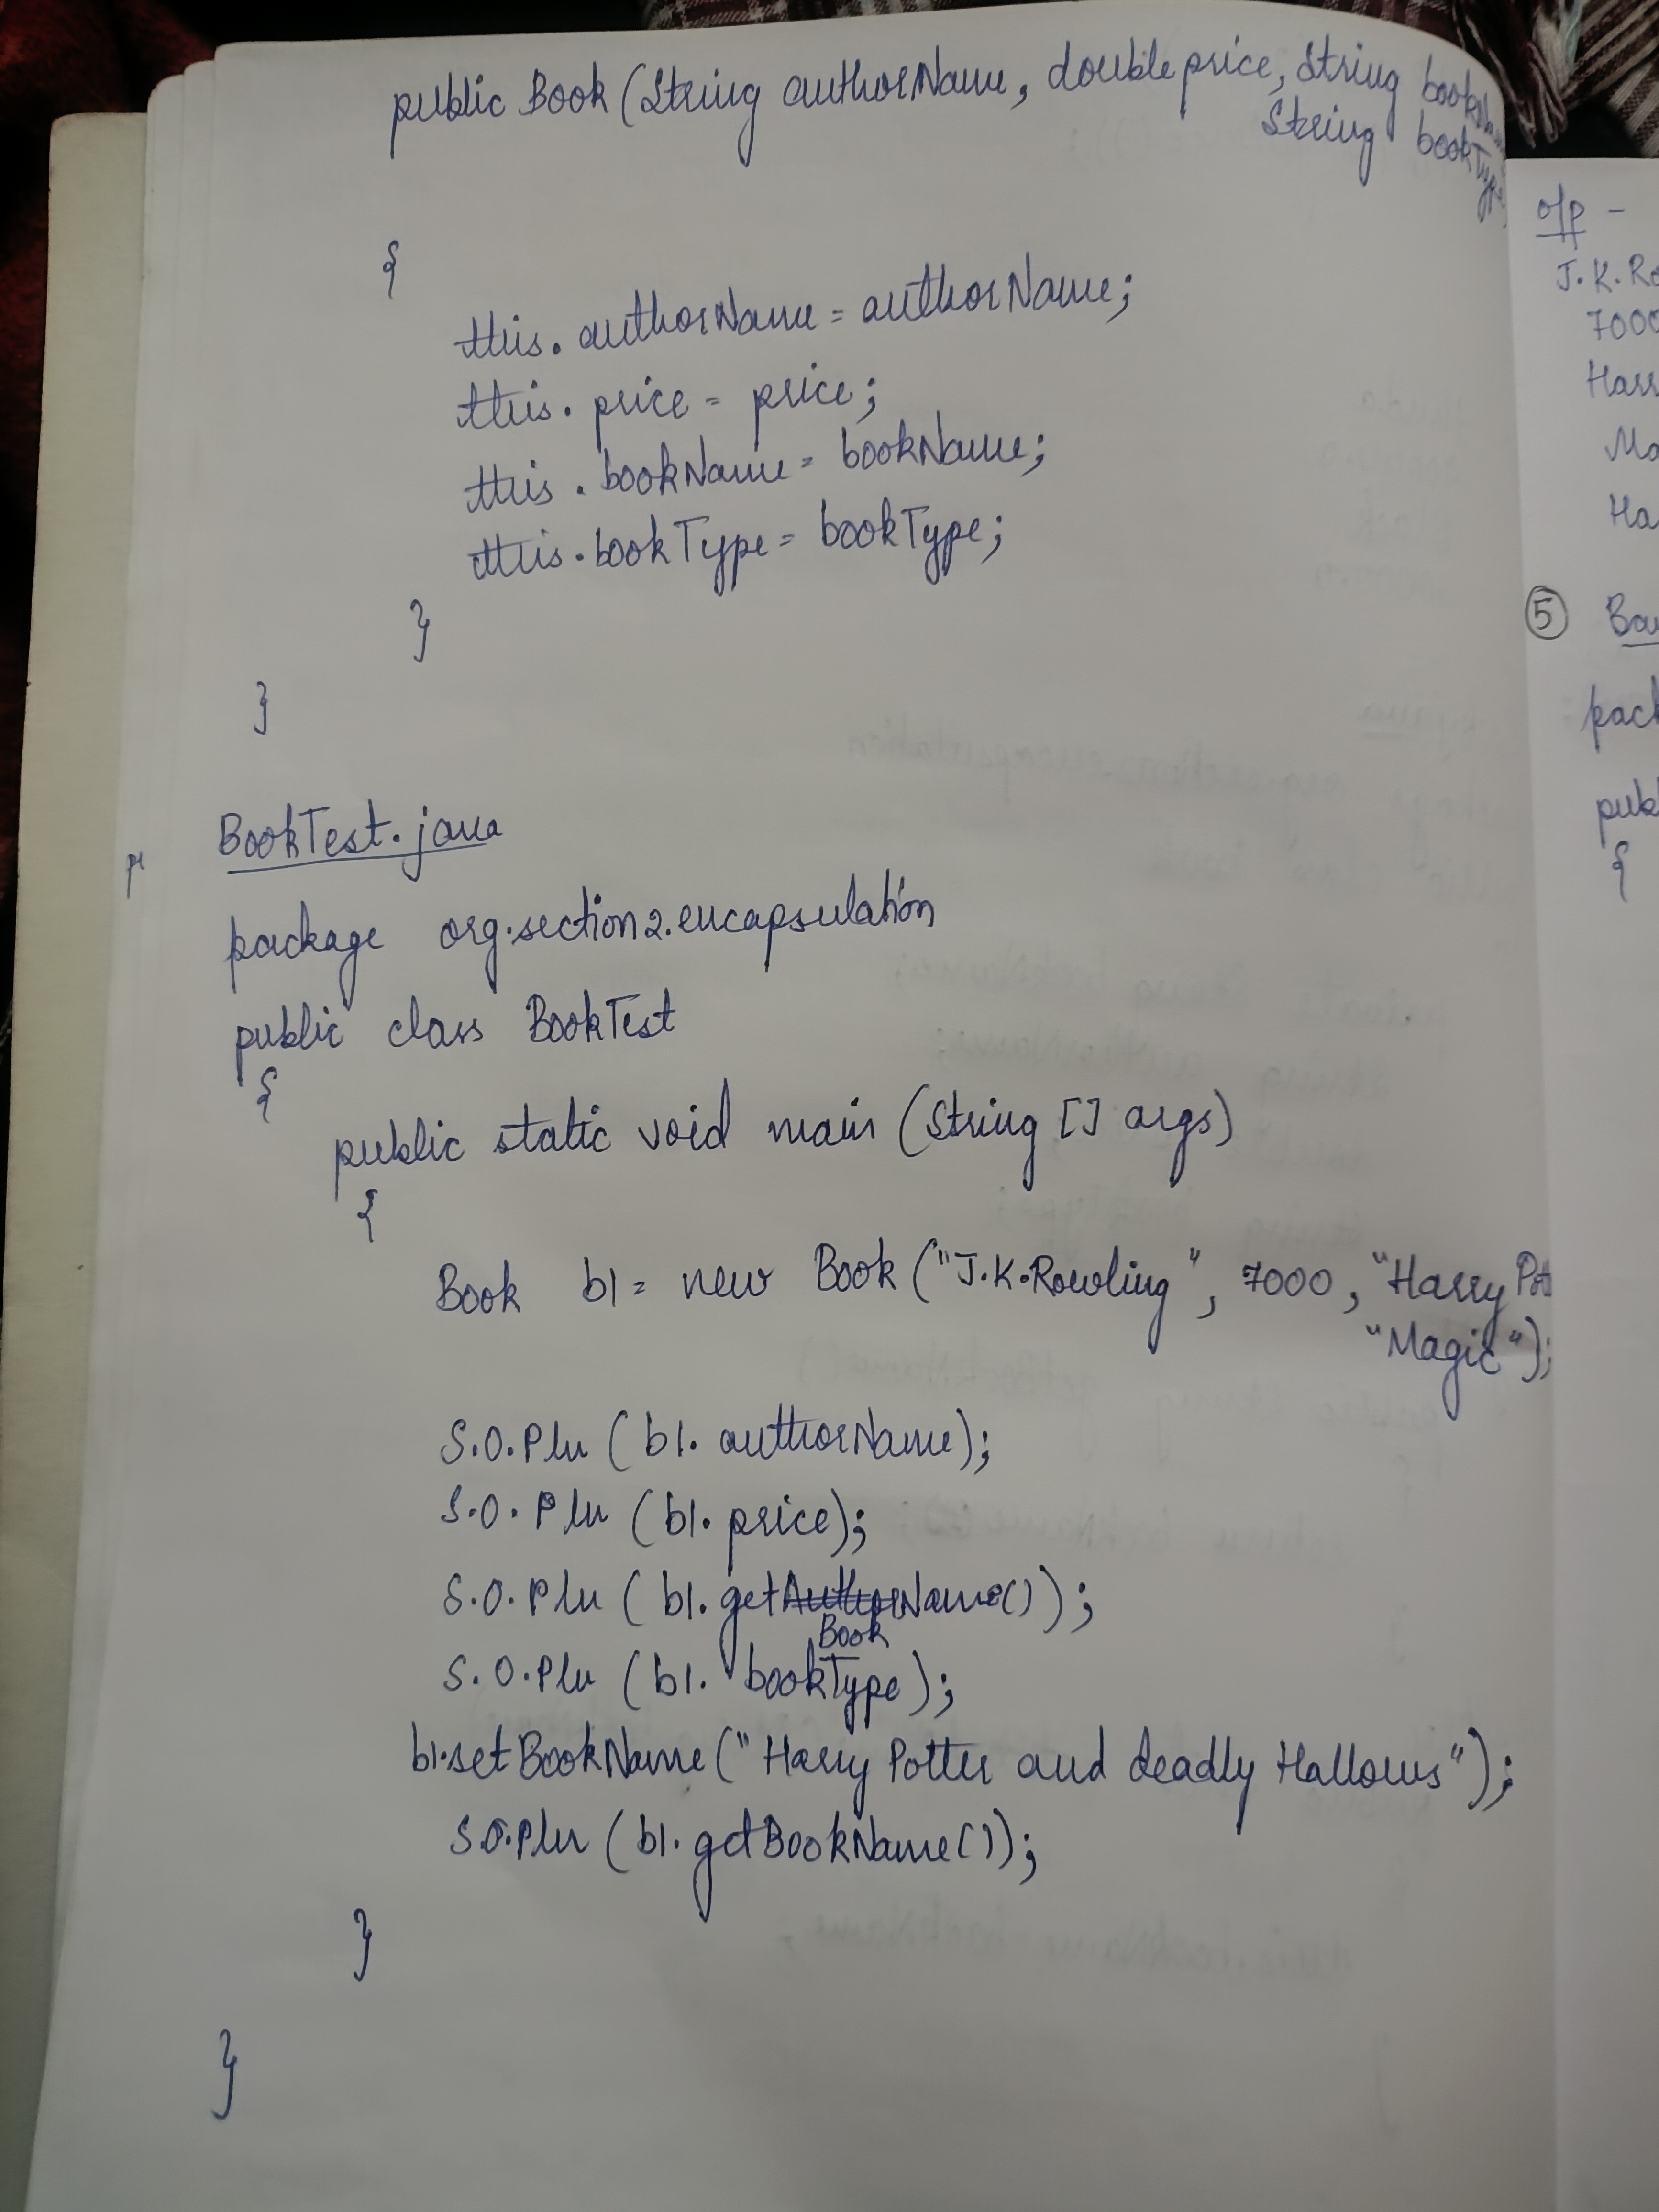 public Book (String authorName, double price, String bookName
String bookType
{
this. authorName = authorName;
this. price = price;
this. bookName = bookName;
this. bookType = bookType;
}
}
BookTest. java
package org.section2.encapsulation
public class BookTest
{
public static void main (String [] args)
{
Book b1 = new Book ("J.K.Rowling", 7000, "Harry Pot
"Magic");
S.O.Pln (b1. authorName);
S.O. Pln (b1. price);
S.O. Pln (b1. getName());
Book
S.O.Pln (b1. bookType);
b1.setBookName("Harry Potter and deadly Hallows");
S.O.Pln (b1. getBookName());
}
}
o/p -
J.K. Ro
7000
Harr
Ma
Ha
5
pack
publ
{